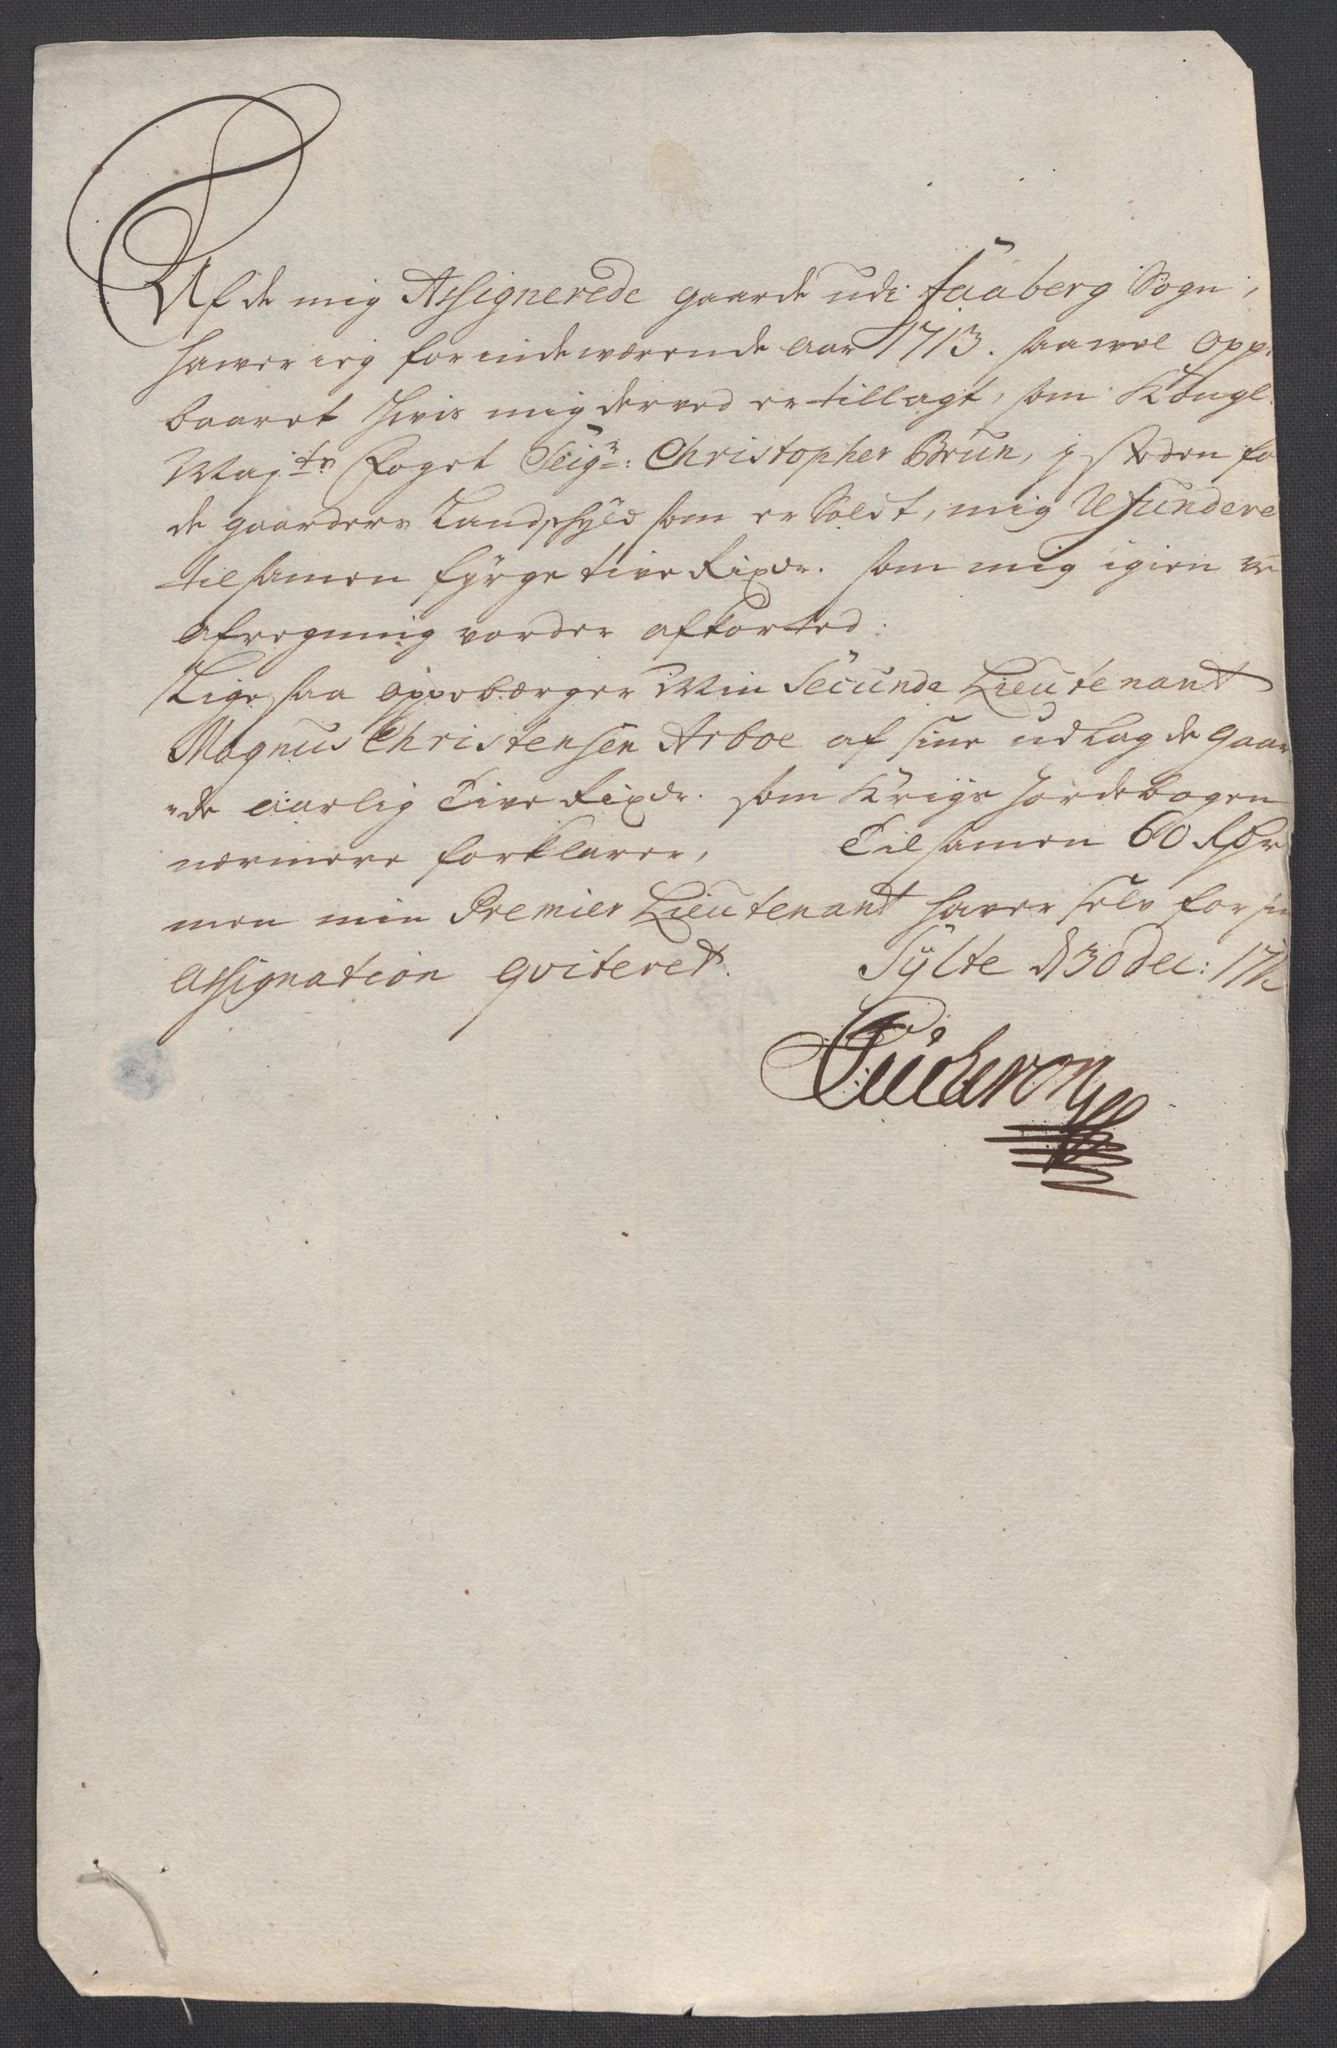 Af de mig Assignerede gaarde udi Faaberg Sogn,
hawer ieg for indewærende aar 1713. saawel oppe
baaret hvis mig derved er tillagt, som Kongl.
Maj:ts Foget Seigr: Christopher Brun, j steden fo
de gaarders Landschyld som er Soldt, mig
til samen fyrge tive Rixdr. som mig igien
afregning vorder afkorted.
Lige saa oppebærger Min Secunde Lieutenant
Magnus Christensen Arboe af sine udlagde gaar
de aarlig Tive Rixdr. som Krigs Jordebogen
nærmere forklarer, Til samen 60 Rdr
men min Premier Lieutenant haver selv for
assignation qviteret. Sylte d 30 dec: 171